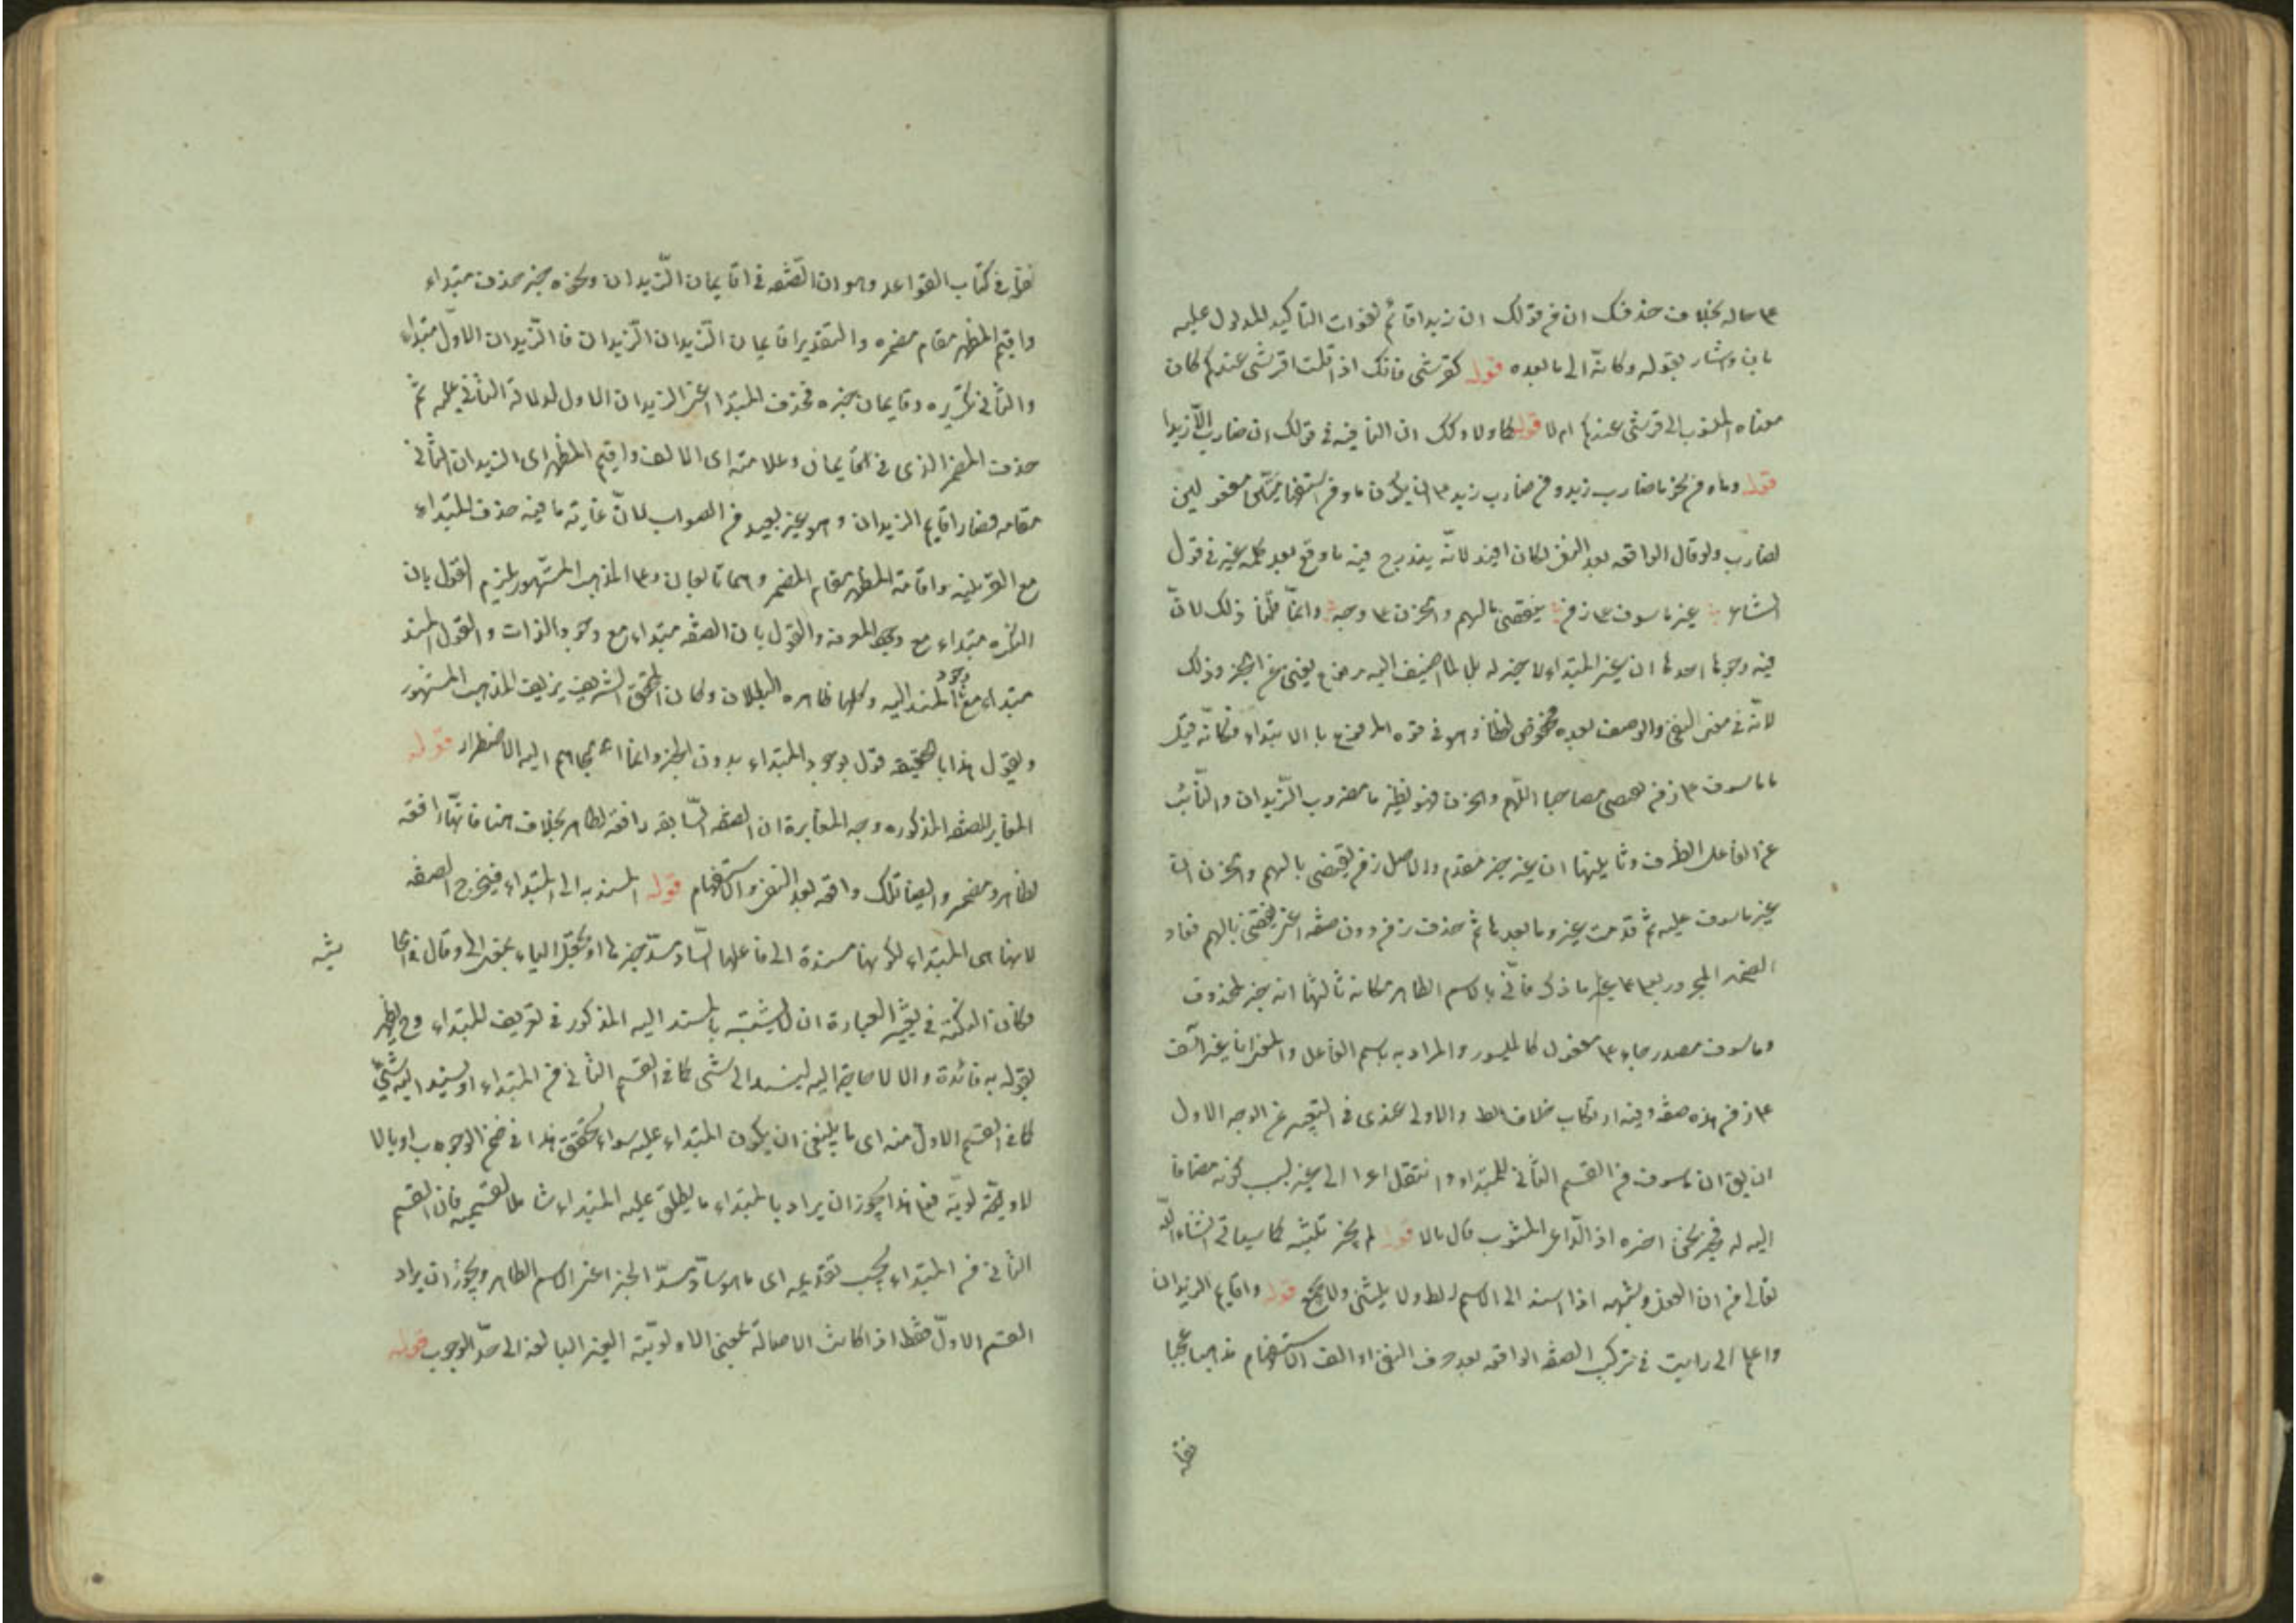 حاله بخلاف حذفك ان في قولك ان زيدا قائم لفوات التاكيد المدلول عليه
بان واشار بقوله وكانه الى ما بعده قوله كقرشي فانك اذا قلت اقرشي عندكم كان
معناه المنسوب الى قريش عندكم ام لا قوله كما ولا وكك ان النافية في قولك ان ضارب الا زيدا
قوله وما ومن نحو ما ضارب زيد ومن ضارب زيد
لضارب ولو قال الواقعه بعد النفي لكان افيد لانه يندرج فيه ما وقع بعد كلمه غير في قول
الشاعر غير ماسوف على زمن ينقضي بالهم والحزن وجه وانما قلنا ذلك لان
فيه وجوها احدها ان غير المبتداء لا خبر له بل لما اضيف اليه مرفوع يغني عن الخبر وذلك
لانه في معنى النفي والوصف بعده مخفوض لفظا وهو في قوه المرفوع بالابتداء فكانه قيل
ما ماسوف على زمن ينقضي مصاحبا للهم والحزن فهو نظير ما مضروب الزيدان والنائب
عن الفاعل الظرف وثانيتها ان غير خبر مقدم والاصل زمن ينقضي بالهم والحزن
غير ماسوف عليه ثم قدمت غير وما بعدها ثم حذف زمن دون صفته اعني ينقضي بالهم فعاد
الضمير المجرور بعلى على غير ما ذكر فاتى بالاسم الظاهر مكانه ثالثها انه خبر لمحذوف
وماسوف مصدر جاء على مفعول كالميسور والمراد به باسم الفاعل والمعنى انا غير آسف
على زمن هذه صفته وفيه ارتكاب خلاف الظ والاولى عندي في التعبير عن الوجه الاول
ان يق ان ماسوف من القسم الثاني للمبتداء وانتقل اعرا الى غير بسبب كونه مضافا
اليه له قوله لم يجز تثنيته كما سياتي انشاء الله
تعالى من ان الفعل وشبهه اذا اسند الى الاسم الظ لا يثنى ولا يجمع قوله واقايم الزيدان
واعلم اني رايت في تركيب الصفه الواقعه بعد حرف النفي او الف الاستفهام مذهبا عجيبا
نقله
نقله في كتاب القواعد وهو ان الصفه في اقايمان الزيدان ونحوه خبر حذف مبتداءه
واقيم المظهر مقام مضمره والتقدير اقايمان الزيدان الزيدان فالزيدان الاول مبتداء
والثاني تكريره وقايمان خبره فحذف المبتدا اعني الزيدان الاول لدلالة الثاني عليه ثم
حذف المضمر الذي في اقايمان وعلامته اي الالف واقيم المظهر اي الزيدان الثاني
مقامه فصار اقايم الزيدان وهو غير بعيد من الصواب لان غايته ما فيه حذف المبتداء
مع القرينه واقامة المظهر مقام المضمر وهما شايعان وعلى المذهب المشهور يلزم القول بان
النكره مبتداء مع وجود المعرفه والقول بان الصفه مبتداء مع وجود الذات والقول المسند
مبتداء مع وجود المسند اليه وكلها ظاهره البطلان وكان المحقق الشريف يزيف المذهب المشهور
ويقول هذا بالحقيقه قول بوجود المبتداء بدون الخبر وانما الجاهم اليه الاضطرار قوله
المغاير للصفه المذكوره وجه المغايرة ان الصفه السابقه رافعه لظاهر بخلاف هنا فانها رافعه
لظاهر ومضمر وايضا تلك واقعه بعد النفي والاستفهام قوله المسند به الى المبتداء فيخرج الصفه
لانها هي المبتداء لكونها مسندة الى فاعلها الساد مسد خبرها او يجعل الباء بمعنى الى وقال
شيه
وكان النكته في تغيير العبارة ان لا يشتبه بالمسند اليه المذكور في تعريف المبتداء وح يظهر
لقوله به فائدة والا لا حاجة اليه ليسند الى شي كما في القسم الثاني من المبتداء او يسند اليه شي
كما في القسم الاول منه اي ما ينبغي ان يكون المبتداء عليه سواء تحقق هذا في ضمن الوجوب او بالا
لاولويه فعلى هذا يجوز ان يراد بالمبتداء ما يطلق عليه المبتداء شاملا لقسميه فان القسم
الثاني من المبتداء يجب تقديمه اي ما هو ساد مسد الخبر اعني الاسم الظاهر ويجوز ان يراد
القسم الاول فقط اذا كانت الاصالة بمعنى الاولوية الغير البالغه الى حد الوجوب قوله